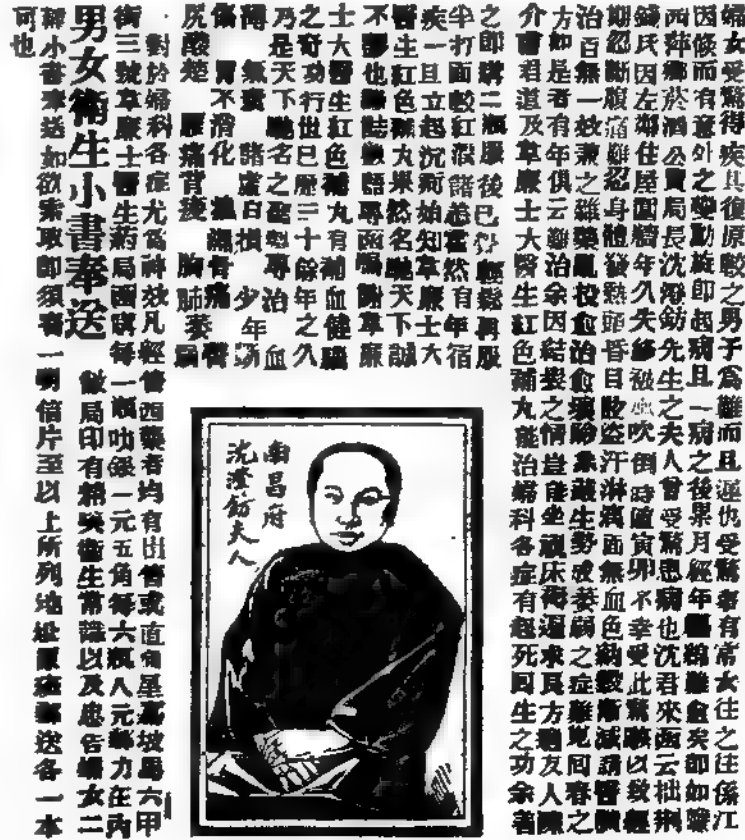 婦女受驚得疾其復原較之男子爲難而且遲也受驚者有常女往之往係江
因倏而有意外之變動旋即起病且一病之後累月經年纏綿難愈矣即如
西萍鄉菸酒公賣局長沈澄鈁先生之夫人曾受驚患病也沈君來函云拙荆
錢氏因左鄰住屋圍牆年久失修被吹倒時值寅卯不幸受此驚駭以致經
期忽斷腹痛難忍身體發熱頭昏目眩盗汗淋漓面無血色納穀漸減請醫調
治百無一效兼之雜藥亂投愈治愈壞生勢成萎弱之症難見回春之
方如是者有年俱云難治余因結髮之情豈能坐視床褥還求良方適友人陳
介書君道及韋廉士大醫生紅色補丸能治婦科各症有起死回生之功余耆
之即購二瓶服後已覺輕鬆再服
半打面較紅潤諸恙霍然有年宿
疾一旦立起沉疴始知韋廉士大
醫生紅色補丸果然名馳天下誠
不謬也謝韋廉
士大醫生紅色補丸有補血健腦
之奇功行世已歷三十餘年之久
乃是天下馳名之聖藥專治 血
薄 氣衰 諸虛百損 少年
傷 胃不消化 骨痛
尻酸楚 腰痛背痠 胸肺萎
對於婦科各症尤爲神效凡經售西藥者均有出售或直向星嘉坡馬六甲
街三號韋廉士醫生藥局函購每一瓶叻銀一元五角每六瓶八元郵力在內
男女衛生小書奉送
局印有精美衛生常識以及忠告婦女二
種小書奉送如欲索取即須寄一明信片至以上所列地址原班郵送各一本
可也
南昌府
沈澄鈁夫人